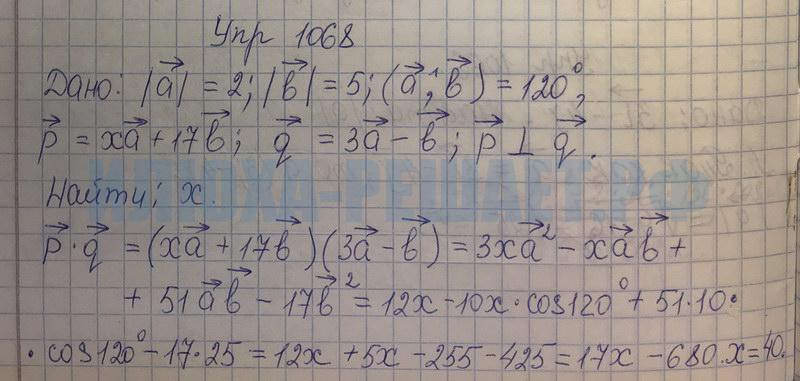 Упр 1068
Дано: |a⃗| = 2; |b⃗| = 5; (a⃗ ^; b⃗) = 120°;
p⃗ = xa⃗ + 17b⃗; q⃗ = 3a⃗ - b⃗; p⃗ ⊥ q⃗.
Найти; x.
p⃗ · q⃗ = (xa⃗ + 17b⃗)(3a⃗ - b⃗) = 3xa⃗² - xa⃗b⃗ +
+ 51a⃗b⃗ - 17b⃗² = 12x - 10x · cos120° + 51 · 10 ·
· cos120° - 17 · 25 = 12x + 5x - 255 - 425 = 17x - 680. x = 40.